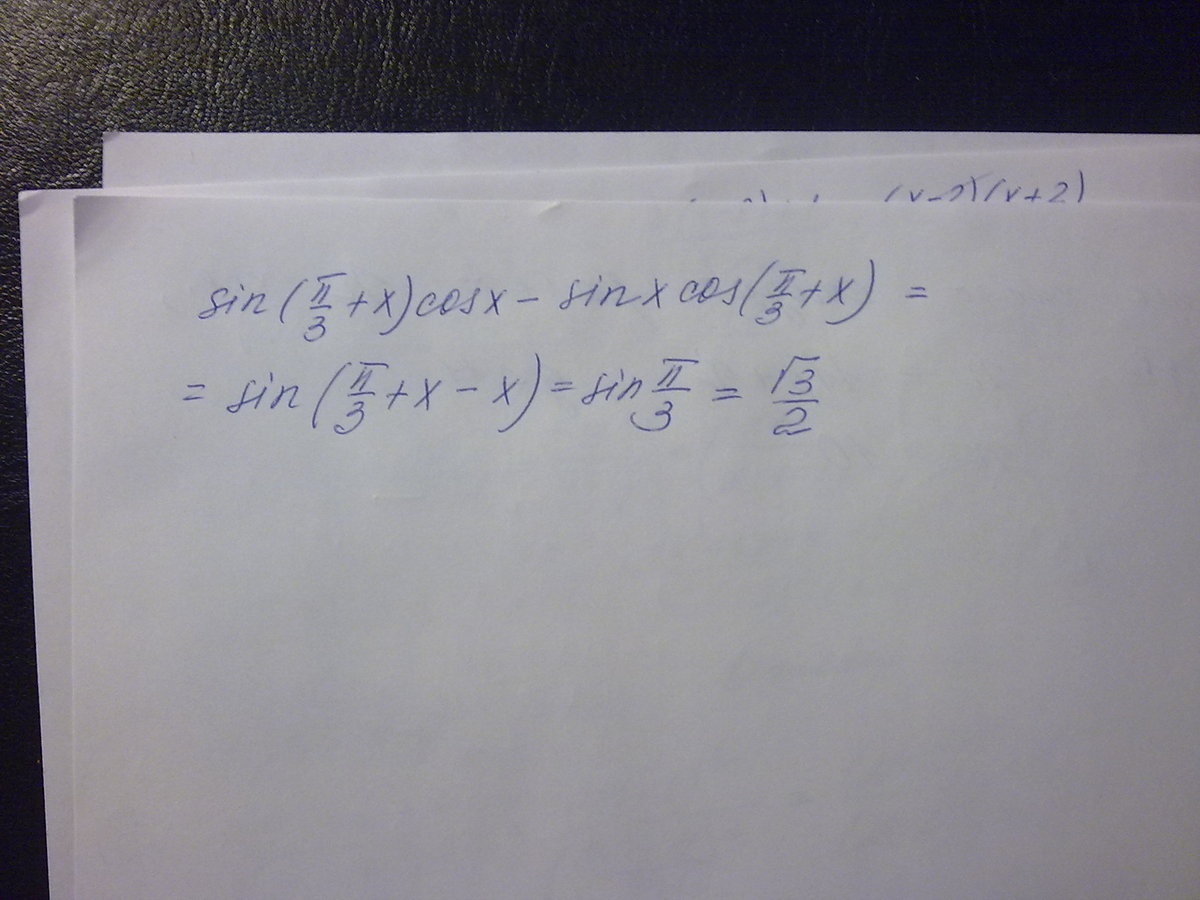 (x-2)(x+2)
sin(π/3+x)cosx - sinx cos(π/3+x) =
= sin(π/3+x-x) = sin π/3 = √3/2